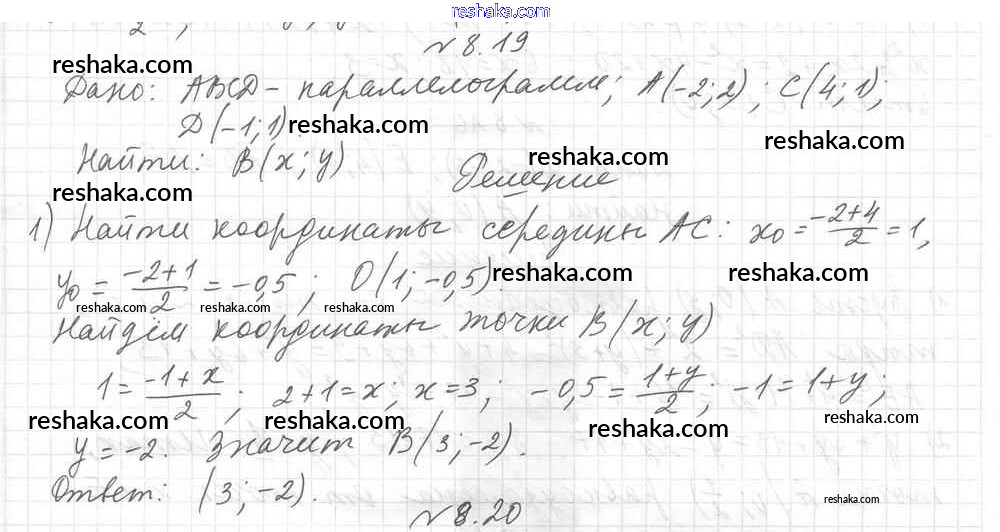 reshaka.com
№ 8.19
reshaka.com reshaka.com
Дано: ABCD - параллелограмм; A(-2;2); C(4;1);
D(-1;1). reshaka.com reshaka.com
Найти: B(x;y) reshaka.com
Решение
reshaka.com
1) Найти координаты середины AC: x₀ = (-2+4)/2 = 1,
y₀ = (-2+1)/2 = -0,5; O(1;-0,5). reshaka.com reshaka.com
reshaka.com reshaka.com reshaka.com reshaka.com reshaka.com
Найдём координаты точки B(x;y)
1 = (-1+x)/2; 2+1=x; x=3; -0,5 = (1+y)/2; -1=1+y;
reshaka.com reshaka.com reshaka.com reshaka.com
y=-2. Значит B(3;-2).
Ответ: (3;-2).
reshaka.com
№ 8.20